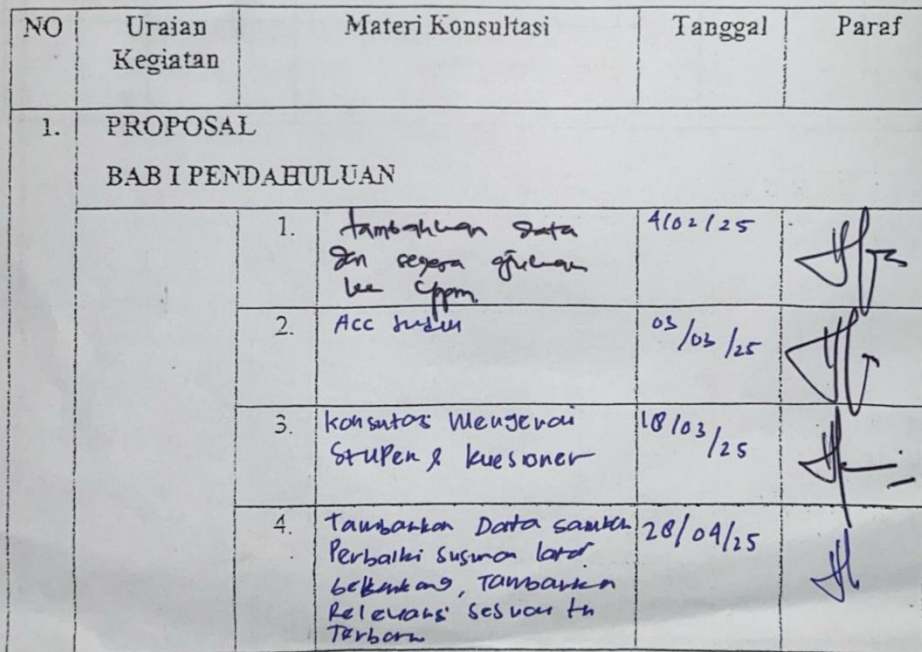 NO Uraian Kegiatan Materi Konsultasi Tanggal Paraf
1. PROPOSAL
BAB I PENDAHULUAN
1. tambahkan data 4/02/25
dan segera ajukan
ke cppm
2. Acc 03/03/25
3. Konsultasi Mengenai 18/03/25
Stupen & kuesioner
4. Tambahkan Data 28/04/25
Perbaiki susunan latar
belakang, Tambahkan
Relevansi sesuai th
Terbaru